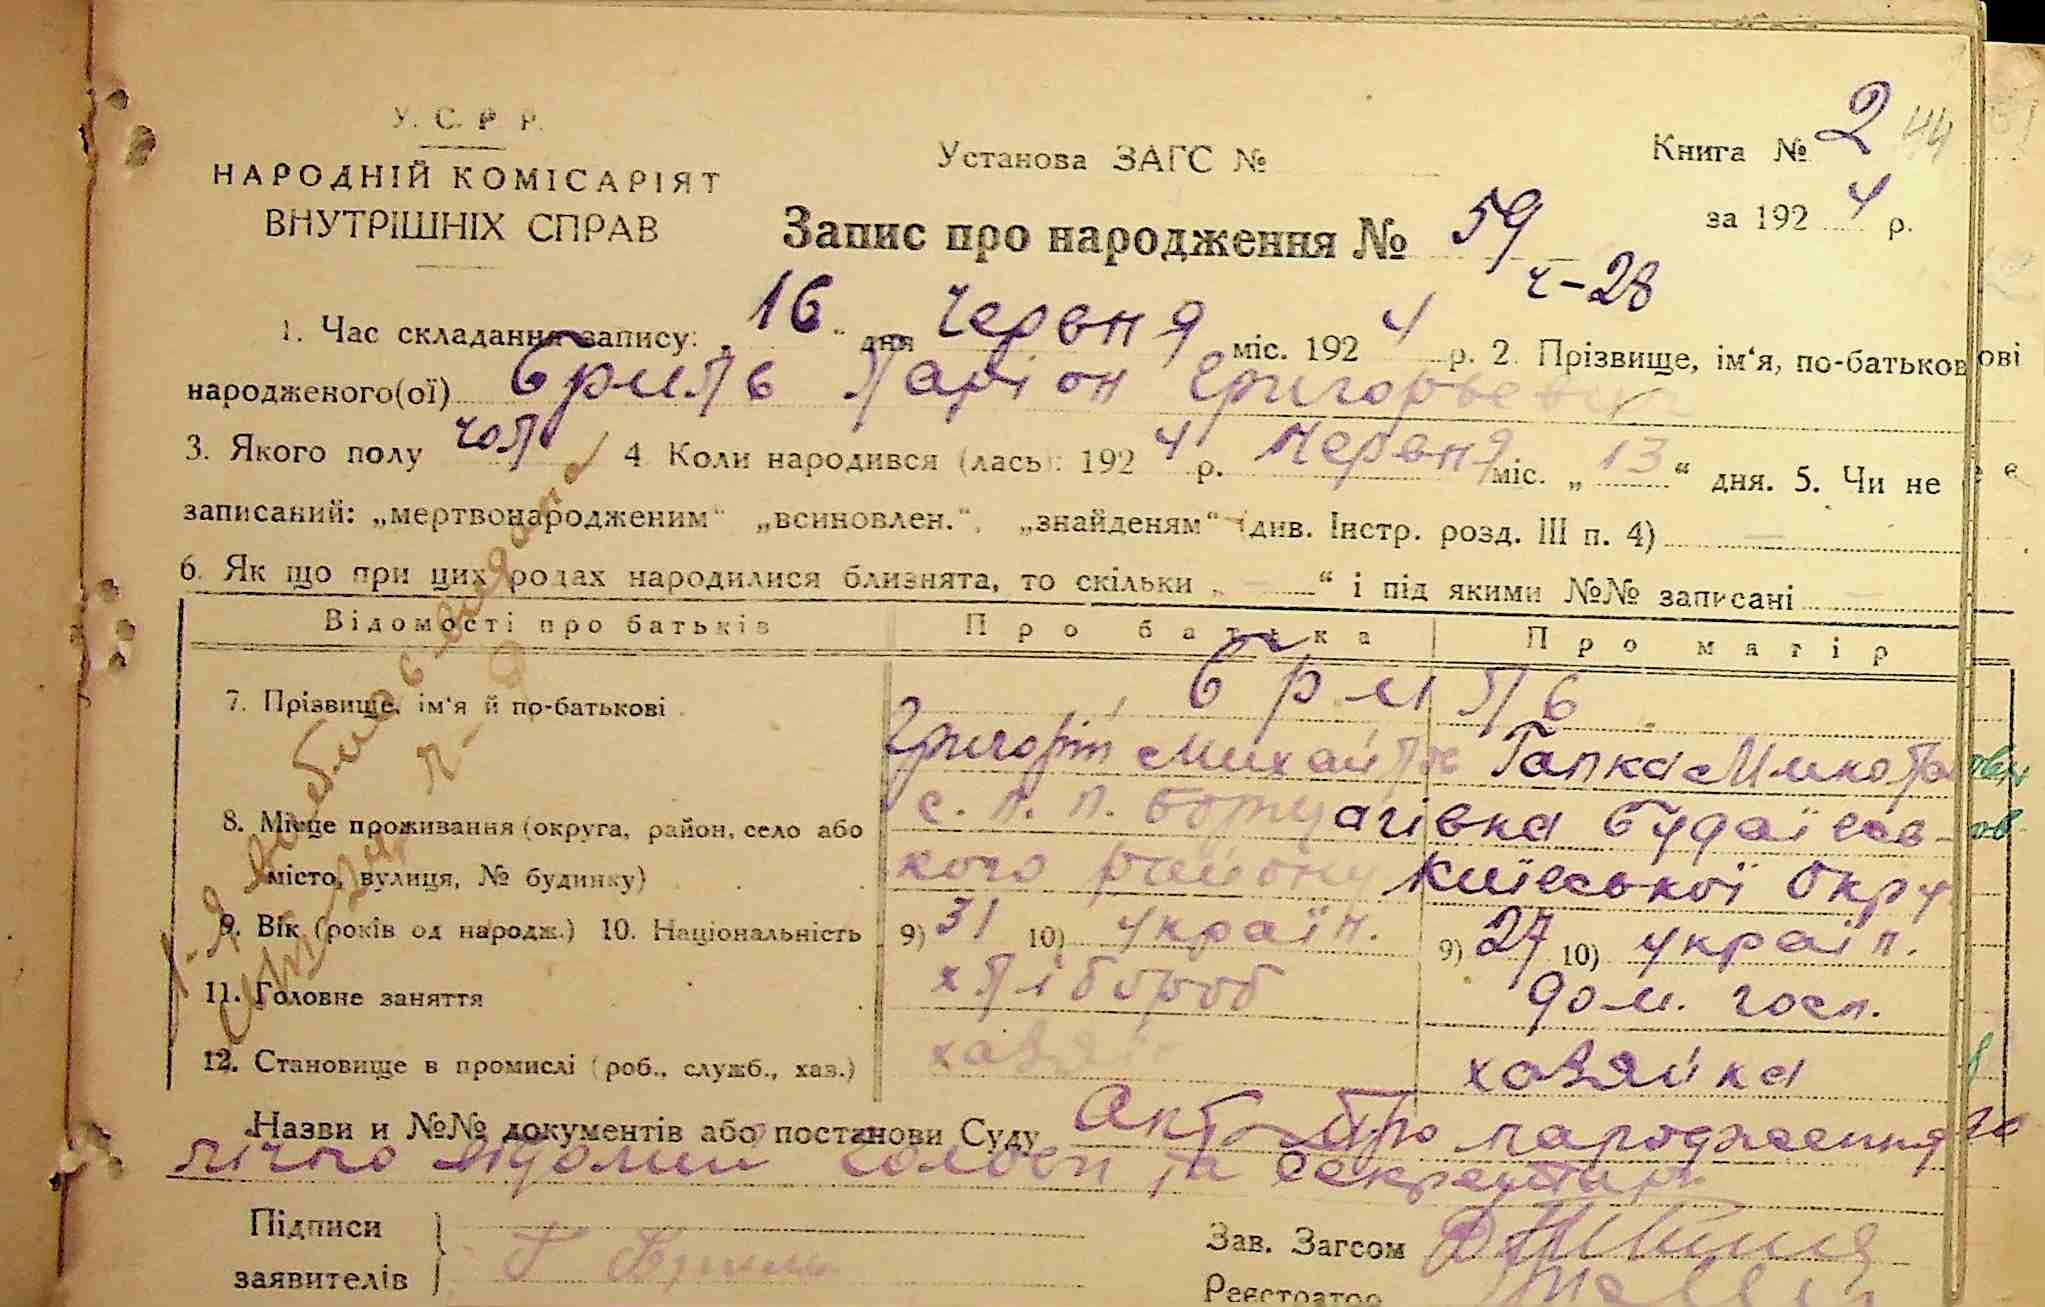 У. С. Р. Р.
НАРОДНІЙ КОМІСАРІЯТ
ВНУТРІШНІХ СПРАВ
Установа ЗАГС №
Книга № 2 44
за 192 4 р.
Запис про народження № 59
ч-28
1. Час складання запису: „16“ дня червня міс. 192 4 р. 2. Прізвище, ім‘я, по-батькові
народженого(ої) Бриль Ларіон Григорьевич
3. Якого полу чол 4 Коли народився (лась): 192 4 р. червня міс. „13“ дня. 5. Чи не є
записаний: „мертвонародженим“ „всиновлен.“, „знайденям“ (див. Інстр. розд. III п. 4) —
6. Як що при цих родах народилися близнята, то скільки „ — “ і під якими №№ записані —
Відомості про батьків Про батька Про матір
7. Прізвище, ім‘я й по-батькові Бриль
Григорій Михайл Гапка Микола
8. Місце проживання (округа, район, село або с. П. П. Борщагівка Будаївсь-
місто, вулиця, № будинку) кого району Київської Окру
9. Вік (років од народж.) 10. Національність 9) 31 10) україн. 9) 27 10) україн.
11. Головне заняття хлібороб дом. госп.
12. Становище в промислі (роб., служб., хаз.) хазяїн хазяйка
Назви и №№ документів або постанови Суду Акт про народження
лічно відомий голові та секретарю
Підписи
заявителів } Г Бриль
Зав. Загсом
Реєстратор